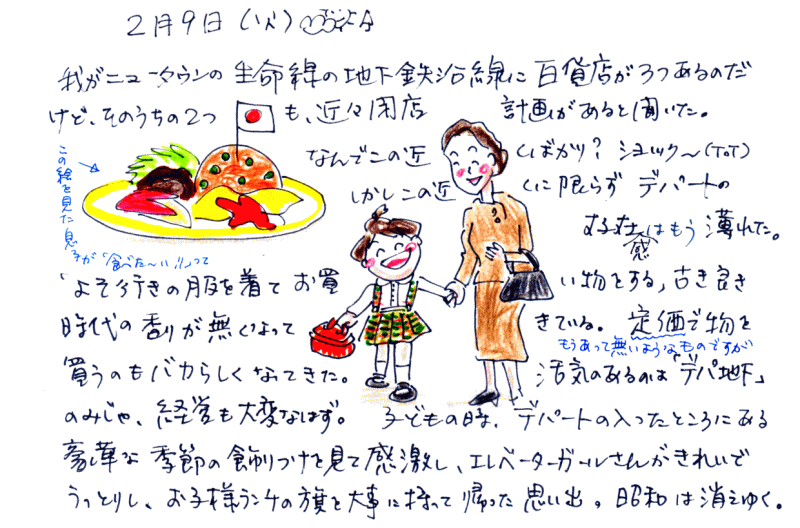 2月9日(火)
我がニュータウンの生命線の地下鉄沿線に百貨店が3つあるのだ
けど、そのうちの2つも、近々閉店計画があると聞いた。
なんでこの近くばかり?ショック〜(ToT)
しかしこの近くに限らずデパートの
存在感はもう薄れた。
「よそ行きの服を着てお買い物をする」古き良き
時代の香りが無くなってきている。定価で物を
もうあって無いようなものですが
買うのもバカらしくなってきた。活気のあるのは「デパ地下」
のみじゃ、経営も大変なはず。子どもの時、デパートの入ったところにある
豪華な季節の飾りつけを見て感激し、エレベーターガールさんがきれいで
うっとりし、お子様ランチの旗を大事に持って帰った思い出。昭和は消えゆく。
この絵を見た息
子が「食べた〜い!!」って